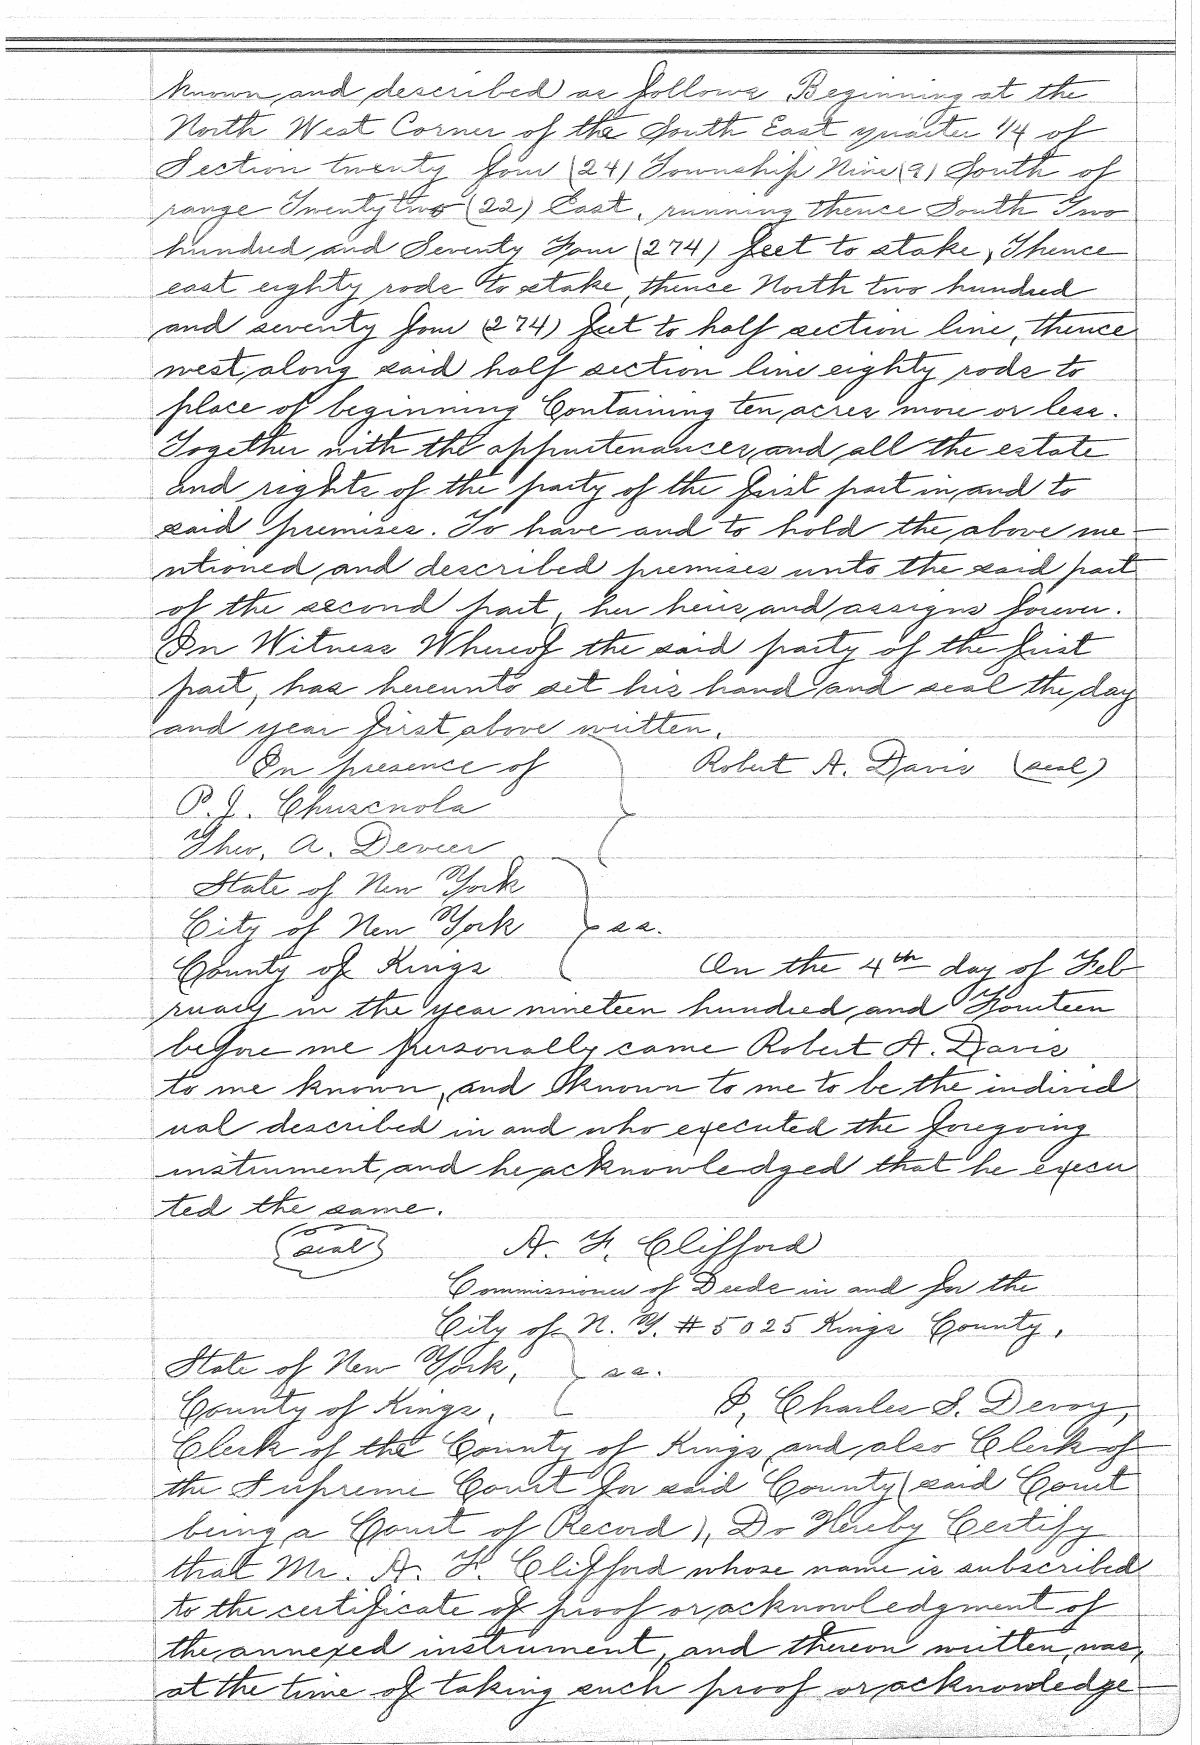 known and described as follows Beginning at the
North West Corner of the South East quarter 1/4 of
Section twenty four (24) Township Nine (9) South of
range Twenty two (22) East, running thence South Two
hundred and Seventy Four (274) feet to stake, Thence
east eighty rods to stake, thence North two hundred
and seventy four (274) feet to half section line, thence
west along said half section line eighty rods to
place of beginning Containing ten acres more or less.
Together with the appurtenances, and all the estate
and rights of the party of the first part in and to
said premises. To have and to hold the above me-
ntioned and described premises unto the said part
of the second part, her heirs and assigns forever.
In Witness Whereof the said party of the first
part, has hereunto set his hand and seal the day
and year first above written.
In presence of Robert A. Davis (seal)
P. J.
Theo. A.
State of New York
City of New York ss.
County of Kings On the 4th day of Feb
ruary in the year nineteen hundred and Fourteen
before me personally came Robert A. Davis
to me known, and known to me to be the individ
ual described in and who executed the foregoing
instrument, and he acknowledged that he execu
ted the same.
(seal) A. F. Clifford
Commissioner of Deeds in and for the
City of N. Y. # 5025 Kings County,
State of New York, ss.
County of Kings, I, Charles S. Devoy,
Clerk of the County of Kings, and also Clerk of
the Supreme Court for said County (said Court
being a Court of Record), Do Hereby Certify
that Mr. A. F. Clifford whose name is subscribed
to the certificate of proof or acknowledgment of
the annexed instrument, and thereon written, was,
at the time of taking such proof or acknowledge-